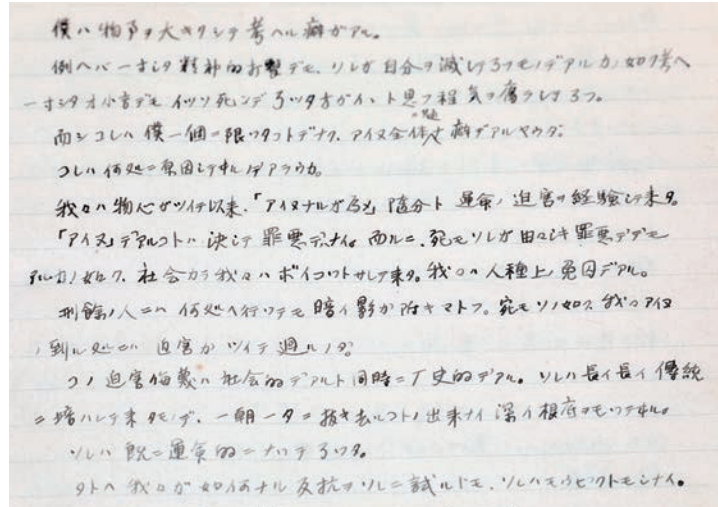 僕ハ物事ヲ大キクシテ考ヘル癖ガアル。
例ヘバ一寸シタ精神的打撃デモ、ソレガ自分ヲ滅シチマフモノデアルカノ如ク考ヘ
一寸シタオ小言デモイッソ死ンデマッタ方ガイヽト思フ程気ヲ腐ラシチマフ。
而シコレハ僕一個ニ限ッタコトデナク、アイヌ全体ノ癖デアルヤウダ。
コレハ何処ニ原因シテヰルデアラウカ。
我々ハ物心ガツイテ以来、「アイヌナルガ為メ」随分ト運命ノ迫害ヲ経験シテ来タ。
「アイヌ」デアルコトハ決シテ罪悪デナイ。而ルニ、宛モソレガ由々シキ罪悪デデモ
アルカノ如ク、社会カラ我々ハボイコットサレテ来タ。我々ハ人種上ノ免囚デアル。
刑餘ノ人ニハ何処ヘ行ッテモ暗イ影ガ附キマトフ。宛モソノ如ク、我々アイヌ
ノ到ル処ニハ迫害ガツイテ廻ルノダ。
コノ迫害侮蔑ハ社会的デアルト同時ニ史的デアル。ソレハ長イ長イ傳統
ニ培ハレテ来タモノデ、一朝一夕ニ抜キ去ルコトノ出来ナイ深イ根底ヲモッテヰル。
ソレハ既ニ運命的ニナッテマッタ。
タトヘ我々ガ如何ナル反抗ヲソレニ試ルトモ、ソレハモウビクトモシナイ。